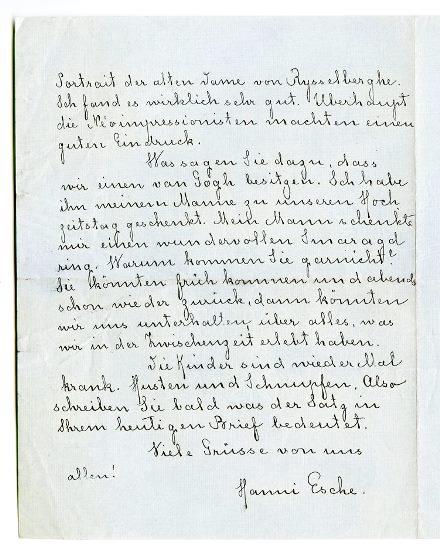 Portrait der alten Dame von Rysselberghe.
Ich fand es wirklich sehr gut. Überhaupt
die Néoimpressionisten machten einen
guten Eindruck.
Was sagen Sie dazu, dass
wir einen van Gogh besitzen. Ich habe
ihn meinem Manne zu unseren Hoch
zeitstag geschenkt. Mein Mann schenkte
mir einen wundervollen Smaragd
ring. Warum kommen Sie garnicht?
Sie könnten früh kommen und abends
schon wieder zurück, dann könnten
wir uns unterhalten, über alles, was
wir in der Zwischenzeit erlebt haben.
Die Kinder sind wieder Mal
krank. Husten und Schnupfen. Also
schreiben Sie bald was der Satz in
Ihrem heutigen Brief bedeutet.
Viele Grüsse von uns
allen!
Hanni Esche.